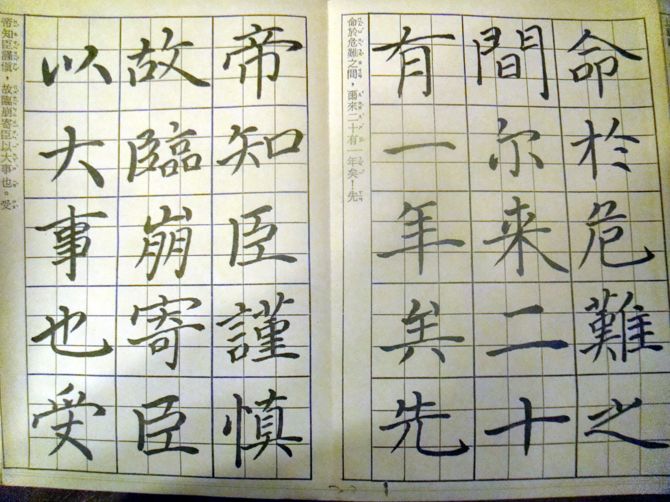 命於危難之
間尔来二十
有一年矣先
命於危難之間，爾來二十有一年矣！先
帝知臣謹慎
故臨崩寄臣
以大事也受
帝知臣謹慎，故臨崩寄臣以大事也。受